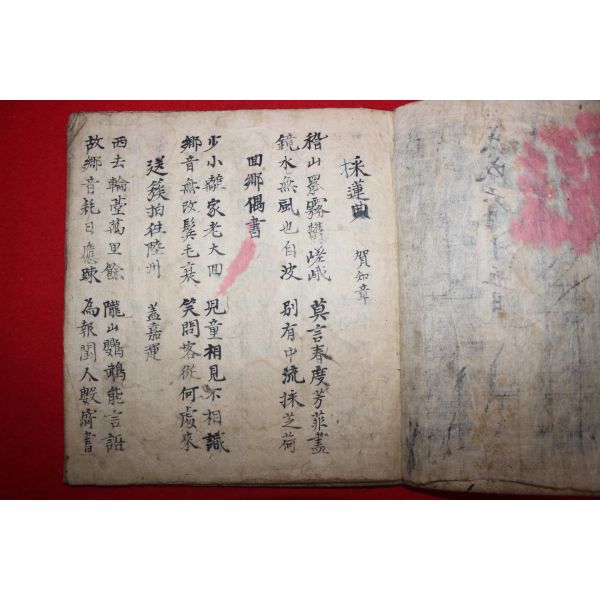 採蓮曲 賀知章
稽山罷霧欝嵯峨
鏡水無風也自波
莫言春度芳菲盡
別有中流採芝荷
回鄉偶書
少小離家老大回
鄉音無改鬢毛衰
兒童相見不相識
笑問客從何處來
送簇拍往陸州 蓋嘉運
西去輪臺萬里餘
故鄉音耗日應踈
隴山鸚鵡能言語
為報閨人數寄書